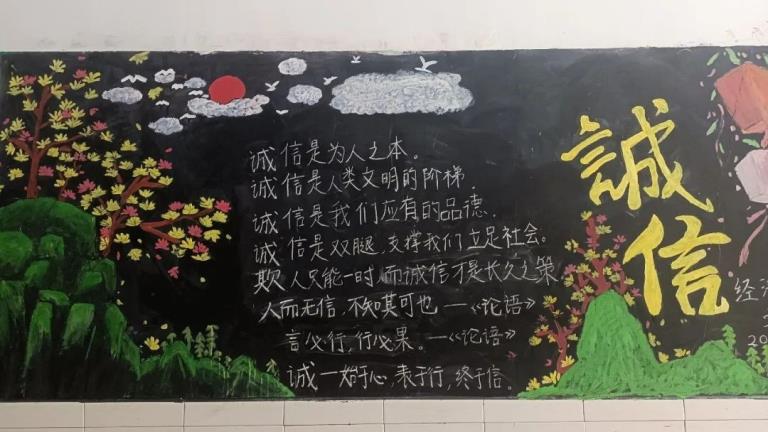 诚信是为人之本。
诚信是人类文明的阶梯.
诚信是我们应有的品德.
诚信是双腿,支撑我们立足社会。
欺人只能一时,而诚信才是长久之策
人而无信,不知其可也——《论语》
言必行,行必果。——《论语》
诚—始于心,表于行,终于信。
誠信
经济
20